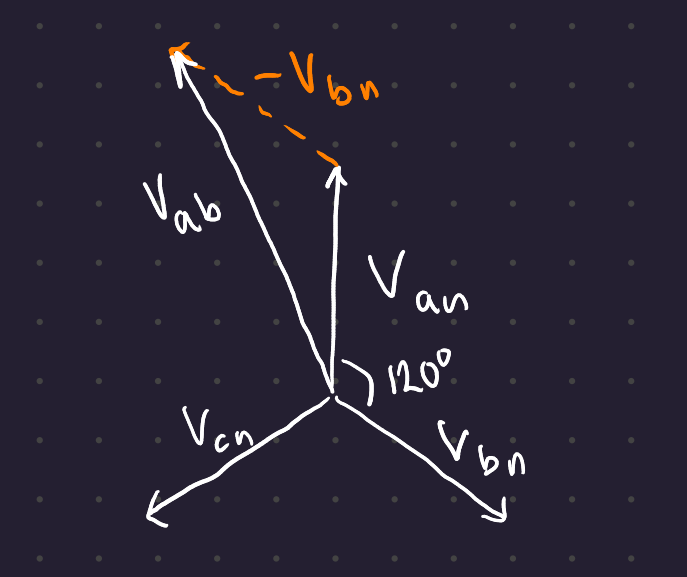 -Vbn
Vab
Van
120°
Vcn
Vbn